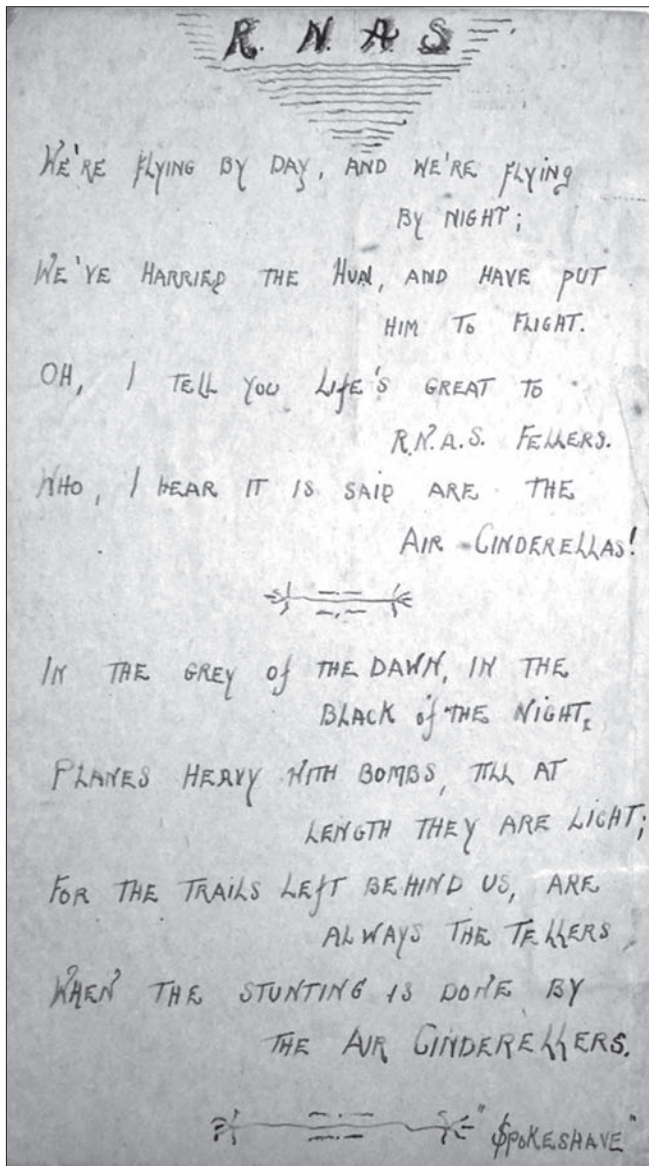 R. N. A. S
WE'RE FLYING BY DAY, AND WE'RE FLYING
BY NIGHT;
WE'VE HARRIED THE HUN, AND HAVE PUT
HIM TO FLIGHT.
OH, I TELL YOU LIFE'S GREAT TO
R.N.A.S. FELLERS.
WHO, I HEAR IT IS SAID ARE THE
AIR CINDERELLAS!
IN THE GREY of THE DAWN, IN THE
BLACK of THE NIGHT,
PLANES HEAVY WITH BOMBS, TILL AT
LENGTH THEY ARE LIGHT;
FOR THE TRAILS LEFT BEHIND US, ARE
ALWAYS THE TELLERS
WHEN THE STUNTING IS DONE BY
THE AIR CINDERELLERS.
"SPOKESHAVE"